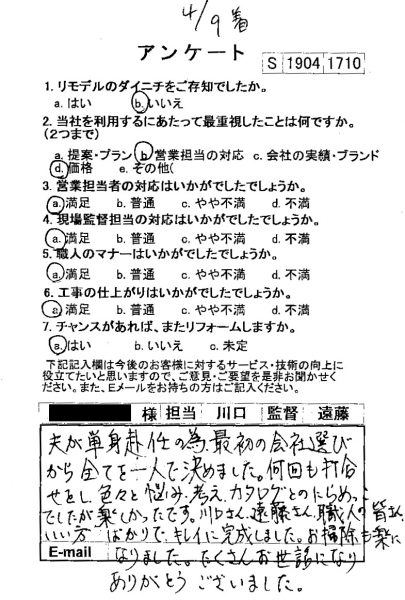 4/9着
アンケート
S 1904 1710
1. リモデルのダイニチをご存知でしたか。
a. はい b. いいえ
2. 当社を利用するにあたって最重視したことは何ですか。
(2つまで)
a. 提案・プラン b. 営業担当の対応 c. 会社の実績・ブランド
d. 価格 e. その他(
3. 営業担当者の対応はいかがでしたでしょうか。
a. 満足 b. 普通 c. やや不満 d. 不満
4. 現場監督担当の対応はいかがでしたでしょうか。
a. 満足 b. 普通 c. やや不満 d. 不満
5. 職人のマナーはいかがでしたでしょうか。
a. 満足 b. 普通 c. やや不満 d. 不満
6. 工事の仕上がりはいかがでしたでしょうか。
a. 満足 b. 普通 c. やや不満 d. 不満
7. チャンスがあれば、またリフォームしますか。
a. はい b. いいえ c. 未定
下記記入欄は今後のお客様に対するサービス・技術の向上に
役立てたいと思いますので、ご意見・ご要望を是非お聞かせく
ださい。また、Eメールをお持ちの方はご記入ください。
様 担当 川口 監督 遠藤
夫が単身赴任の為、最初の会社選び
から全てを一人で決めました。何回も打合
せをし、色々と悩み、考え、カタログとのにらめっこ
でしたが楽しかったです。川口さん、遠藤さん、職人の皆さん、
いい方ばかりで、キレイに完成しました。お掃除も楽に
E-mail なりました。たくさんお世話になり
ありがとうございました。